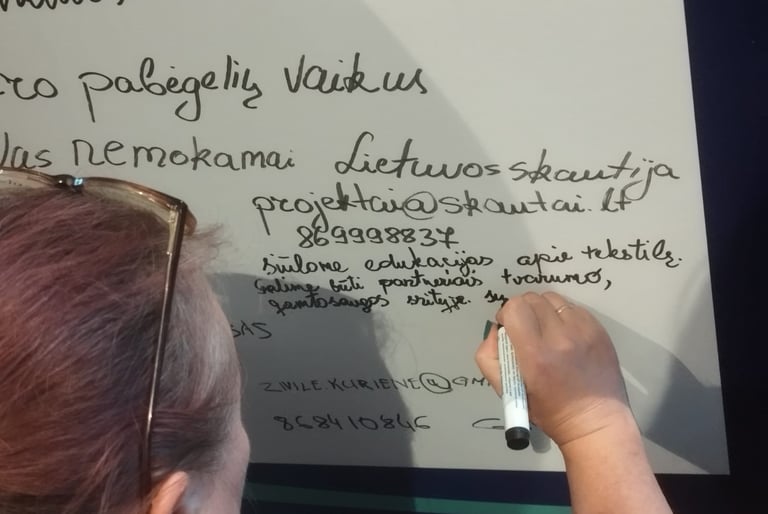 pabėgelių vaikus
nemokamai Lietuvos skautija
projektai@skautai.lt
869998837
siūlome edukacijas apie tekstilę.
Galime būti partneriais tvarumo,
gamtosaugos srityje.
868410846